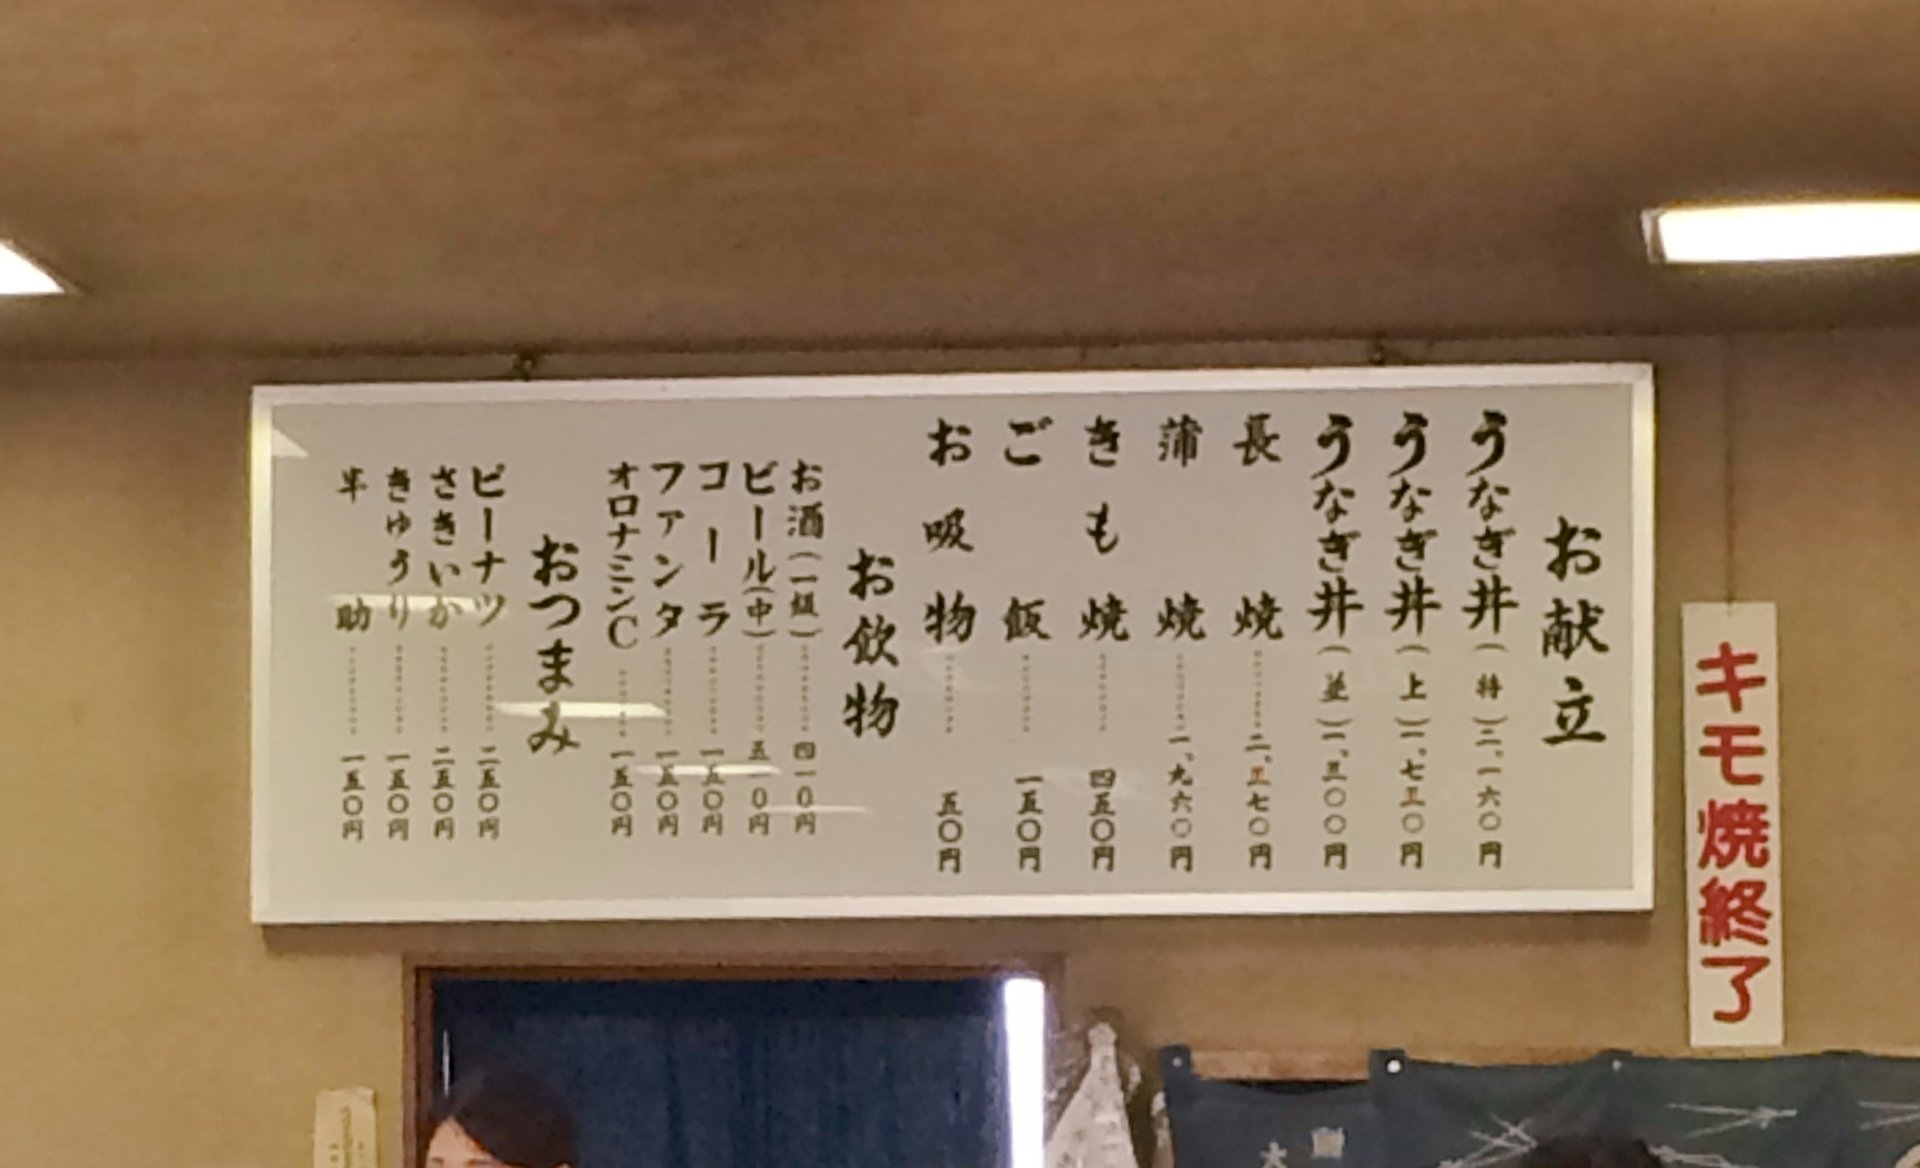 お献立
うなぎ丼(特)二、一六〇円
うなぎ丼(上)一、七五〇円
うなぎ丼(並)一、三〇〇円
長焼 二、五七〇円
蒲焼 一、九六〇円
きも焼 四五〇円
ご飯 一五〇円
お吸物 五〇円
お飲物
お酒(一級) 四一〇円
ビール(中) 五一〇円
コーラ 一五〇円
ファンタ 一五〇円
オロナミンC 一五〇円
おつまみ
ピーナツ 二五〇円
さきいか 二五〇円
きゅうり 一五〇円
半助 一五〇円
キモ焼終了